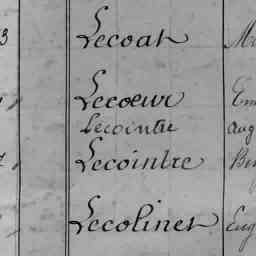 3 Lecoat
Lecoeur
Lecointre aug
Lecointre
Lecolinet Eug